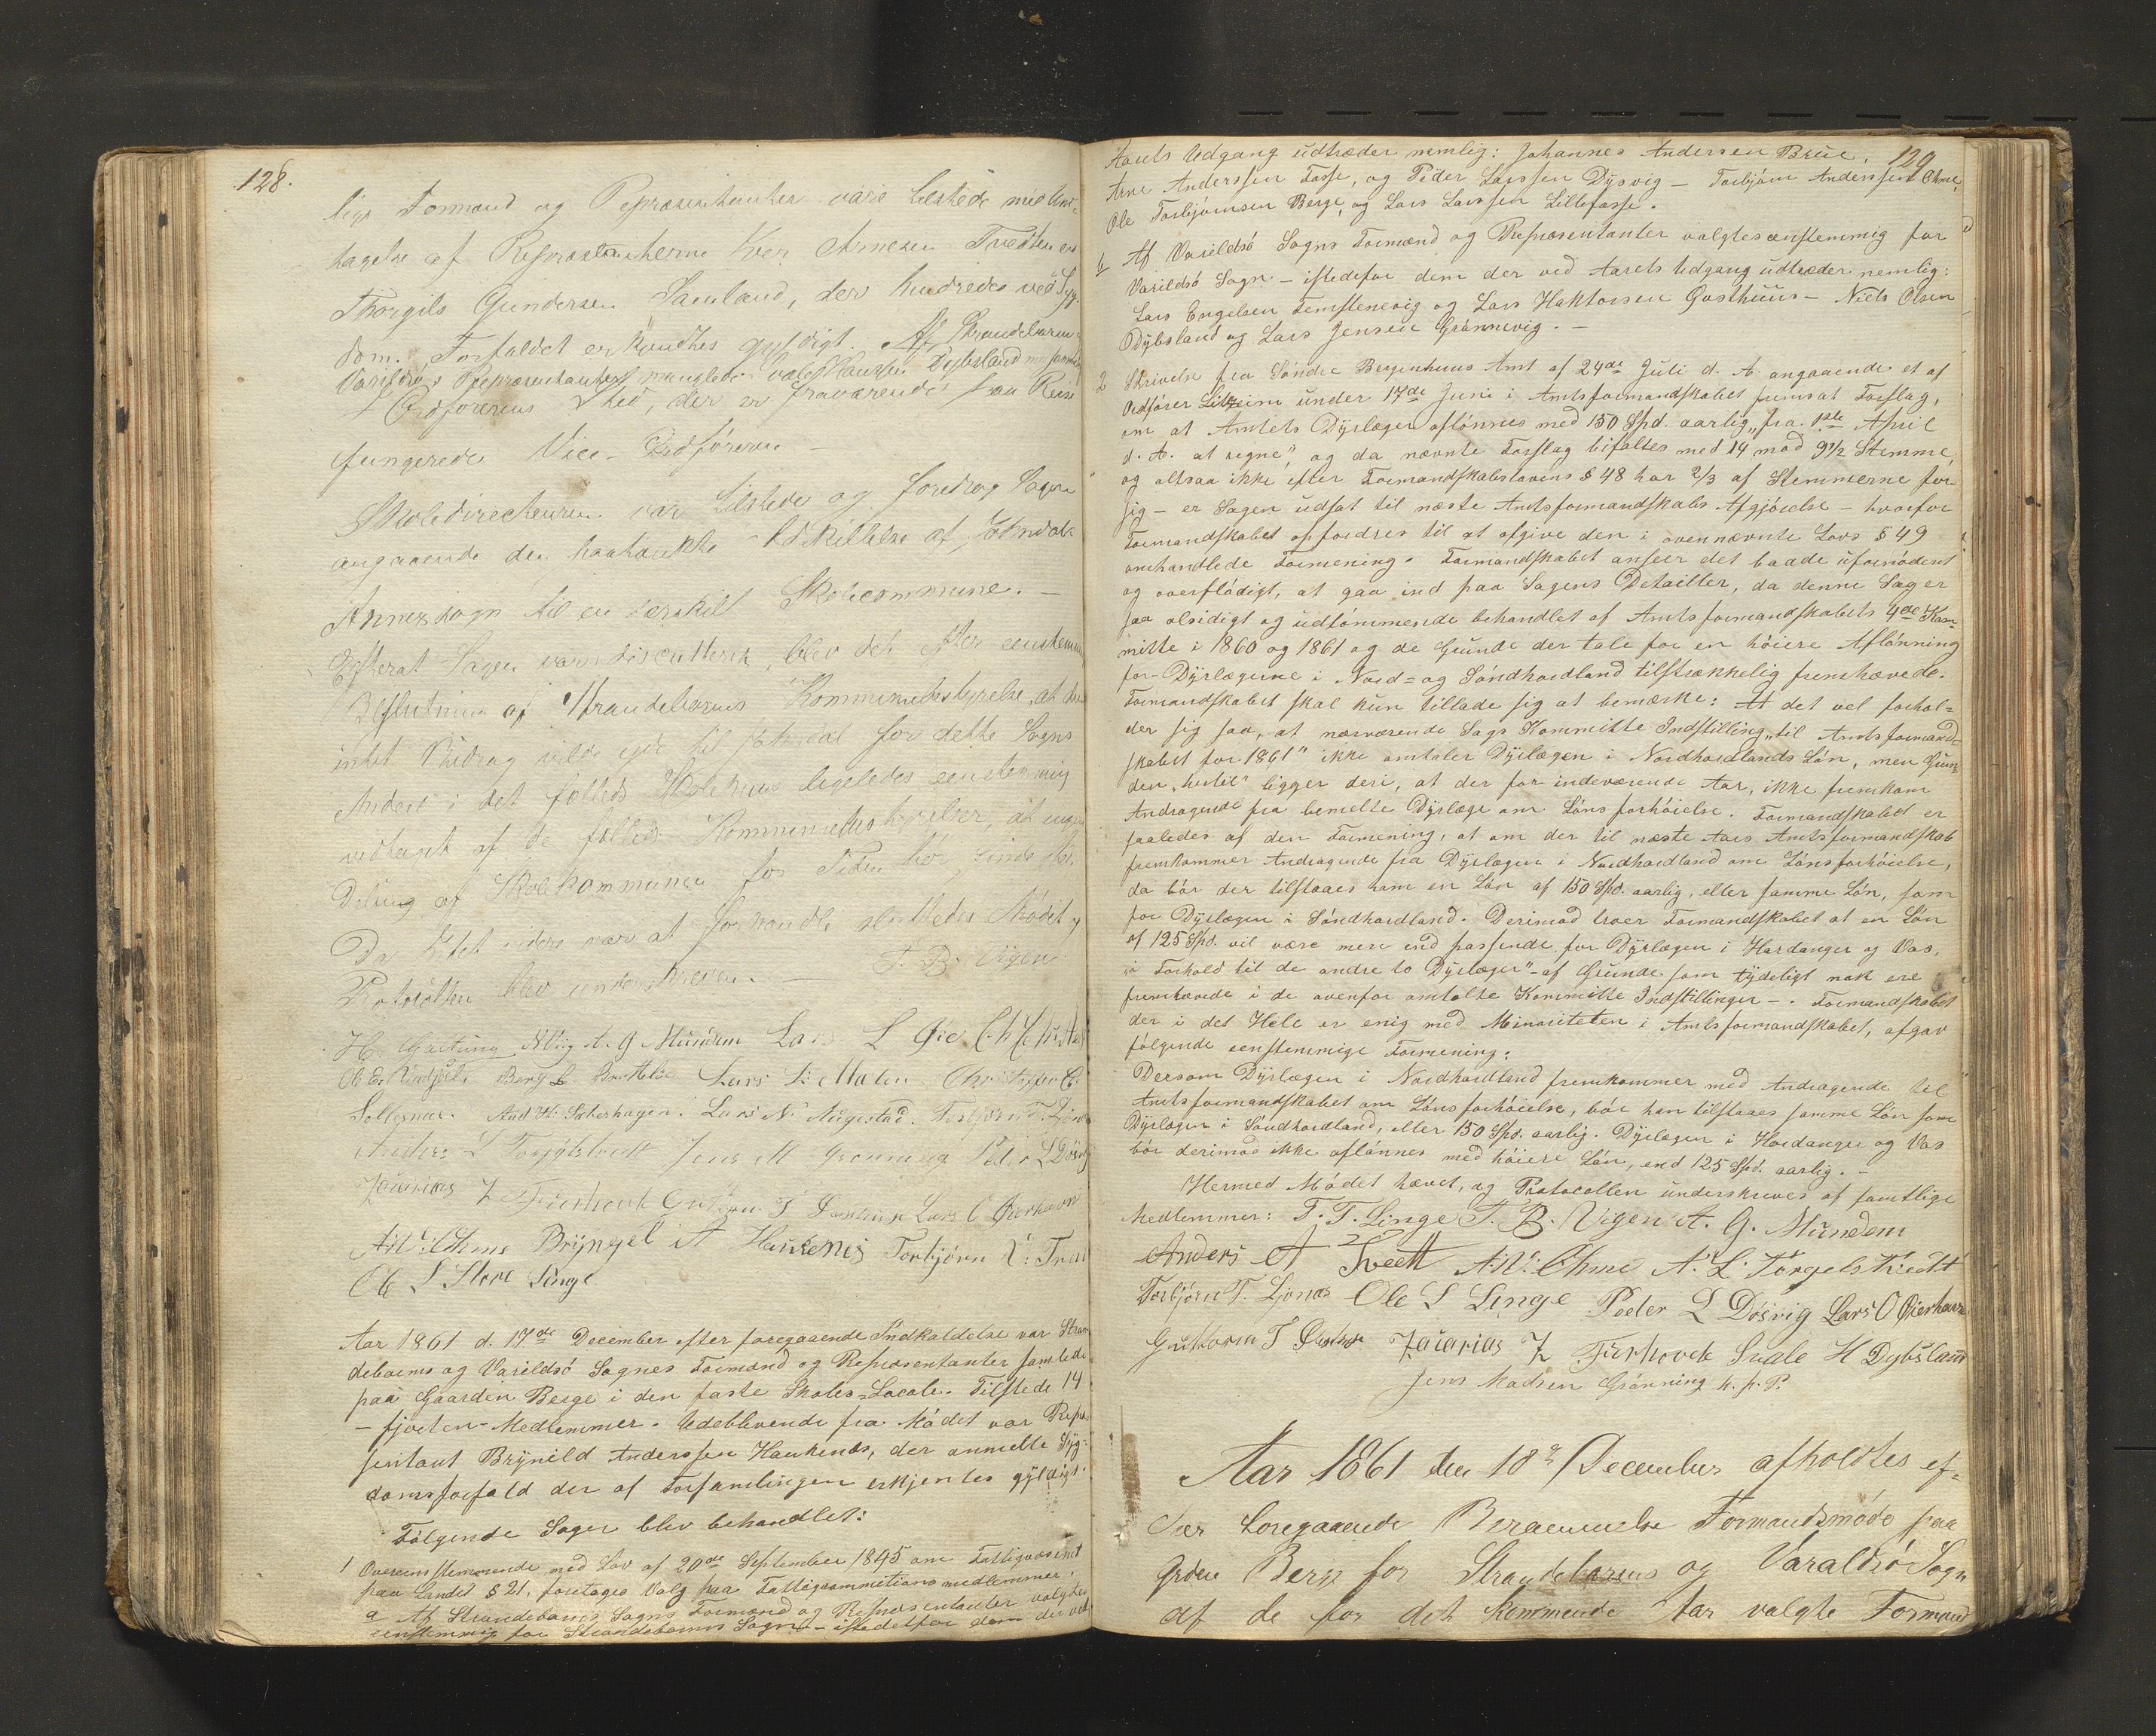 128.
lige Formænd og Repræsentanter vare tilstede med Und-
tagelse af Repræsentanterne Iver Arnesen Tvedten og
Thorgils Gundersen Samland, der hindredes ved Syg-
dom. Forfaldet erkjendtes gyldigt. Af Strandebarm og
Varildsø Repræsentanter manglede Hansen Dybsland
I Ordførerens Sted, der er fraværende paa Reise
fungerede Vice-Ordføreren
Skoledirecteuren var tilstede og foredrog Sagen
angaaende den paatænkte Udskillelse af Jondals
Annexsogn til en særskilt Skolecommune. –
Efterat Sagen var discutteret, blev det efter eenstemmig
Beslutning af Strandebarms Kommunebestyrelse, at
intet Bidrag vilde yde til Jondal for dette Sogns
Andeel i det fælleds Skolehuus ligeledes eenstemmig
vedtaget af de fælleds Kommunebestyrelser, at ingen
Deling af Skolekommunen for Tiden bør finde Sted.
Da Intet videre var at forhandle sluttedes Mødet og
Protokollen blev underskreven. – T. B. Vigen
H. Gartung A. G. Mundem Lars L Øie
Berg L Lars L. Malen Christopher C.
Solesnæs. And H. Sæterhagen. Lars N. Augestad. Torbjørn T. Ljones
Anders L Torgilstvedt Jens M Grønning Peder L Døsvig
Zacarias Z Fierhovek Guttorm T Lars O Øierhavn
A. N. Ohme Bryngel A Haukenes Torbjørn
Ole S Store Linge
Aar 1861 d. 17de December efter foregaaende Indkaldelse var Stran-
debarms og Varildsö Sognes Formænd og Repræsentanter samlede
paa Gaarden Berge i den faste Skoles-Locale. Tilstede 14
– fjorten – Medlemmer. Udeblivende fra Mödet var Repræ-
sentant Brynild Anderssen Haukenæs, der anmeldte Syg-
domsforfald der af Forsamlingen erkjentes gyldigt.
Fölgende Sager blev behandlet:
1 Overeensstemmende med Lov af 20de September 1845 om Fattigvæsenet
paa Landet § 21, foretages Valg paa Fattigcommitions medlemmer.
a Af Strandebarms Sogns Formænd og Repræsentanter valgtes
eenstemmig for Strandebarms Sogn – istedetfor dem der ved
129
Aarets Udgang udtræder nemlig: Johannes Andersen Brue,
Arne Anderssen Fosse, og Peder Larssen Dysvig – Torbjörn Anderssen Ohme,
Ole Torbjörnsen Berge, og Lars Larssen Lillefosse.
b Af Varildsö Sogns Formænd og Repræsentanter valgtes eenstemmig for
Varildsö Sogn – istedefor dem der ved Aarets Udgang udtræder nemlig:
Lars Engelsen Femstenevig og Lars Haktorsen Gosthuus – Niels Olsen
Dybsland og Lars Jensen Grönnevig. –
2 Skrivelse fra Söndre Bergenhuus Amt af 24de Juli d. A. angaaende et af
Ordförer Litzeim under 17de Juni i Amtsformandskabet fremsat Forslag,
om at Amtets Dyrlæger aflönnes med 150 Spd. aarlig „fra 1ste April
d. A. at regne", og da nævnte Forslag bifaltes med 14 mod 9½ Stemme,
og altsaa ikke efter Formandskabslovens § 48 har 2/3 af Stemmerne for
sig – er Sagen udsat til næste Amtsformandskabs Afgjörelse – hvorfor
Formandskabet opfordres til at afgive den i ovennævnte Lovs § 49
omhandlede Formening. Formandskabet anseer det baade uformödent
og overflödigt, at gaa ind paa Sagens Detailler, da denne Sag er
saa alsidigt og udtömmende behandlet af Amtsformandskabets 4de Kom-
mitte i 1860 og 1861 og de Grunde der tale for en höiere Aflönning
for Dyrlægerne i Nord- og Söndhordland tilstrækkelig fremhævede.
Formandskabet skal kun tillade sig at bemærke: At det vel forhol-
der sig saa, at nærværende Sags Kommitte Indstilling „til Amtsformand-
skabet for 1861" ikke omtaler Dyrlægen i Nordhordlands Lön, men Grun-
den „hertil" ligger deri, at der for indeværende Aar, ikke fremkom
Andragende fra bemelte Dyrlæge om Lönsforhöielse. Formandskabet er
saaledes af den Formening, at om der til næste Aars Amtsformandskab
fremkommer Andragende fra Dyrlægen i Nordhordland om Lönsforhöielse,
da bör der tilstaaes ham en Lön af 150 Spd. aarlig, eller samme Lön, som
for Dyrlægen i Söndhordland. Derimod troer Formandskabet at en Lön
af 125 Spd. vil være mere end passende for Dyrlægen i Hardanger og Vos,
„i Forhold til de andre to Dyrlæger" – af Grunde som tydeligt nok ere
fremhævede i de ovenfor omtalte Kommitte Indstillinger –. Formandskabet
der i det Hele er enig med Minoriteten i Amtsformandskabet, afgav
fölgende eenstemmige Formening:
Dersom Dyrlægen i Nordhordland fremkommer med Andragende til
Amtsformandskabet om Lönsforhöielse, bör han tilstaaes samme Lön som
Dyrlægen i Söndhordland, eller 150 Spd. aarlig. Dyrlægen i Hardanger og Vos
bör derimod ikke aflönnes med höiere Lön, end 125 Spd. aarlig. –
Hermed Mödet hævet, og Protocollen underskrives af samtlige
Medlemmer: T. T. Linge T. B. Vigen A. G. Mundem
Anders A Tveett A. N. Ohme A. L. Torgelstviedt
Torbjörn T. Ljones Ole S Linge Peder L Dösvig Lars O Øierhavn
Guttorm T Zacarias Z Fierhovek Sjale H Dybsland
Jens Madsen Grönning m. p. P.
Aar 1861 den 18de December afholdtes ef-
ter foregaaende Berammelse Formandsmöde paa
Gaarden Berge for Strandebarms og Varaldsö Sogn
af de for det kommende Aar valgte Formænd